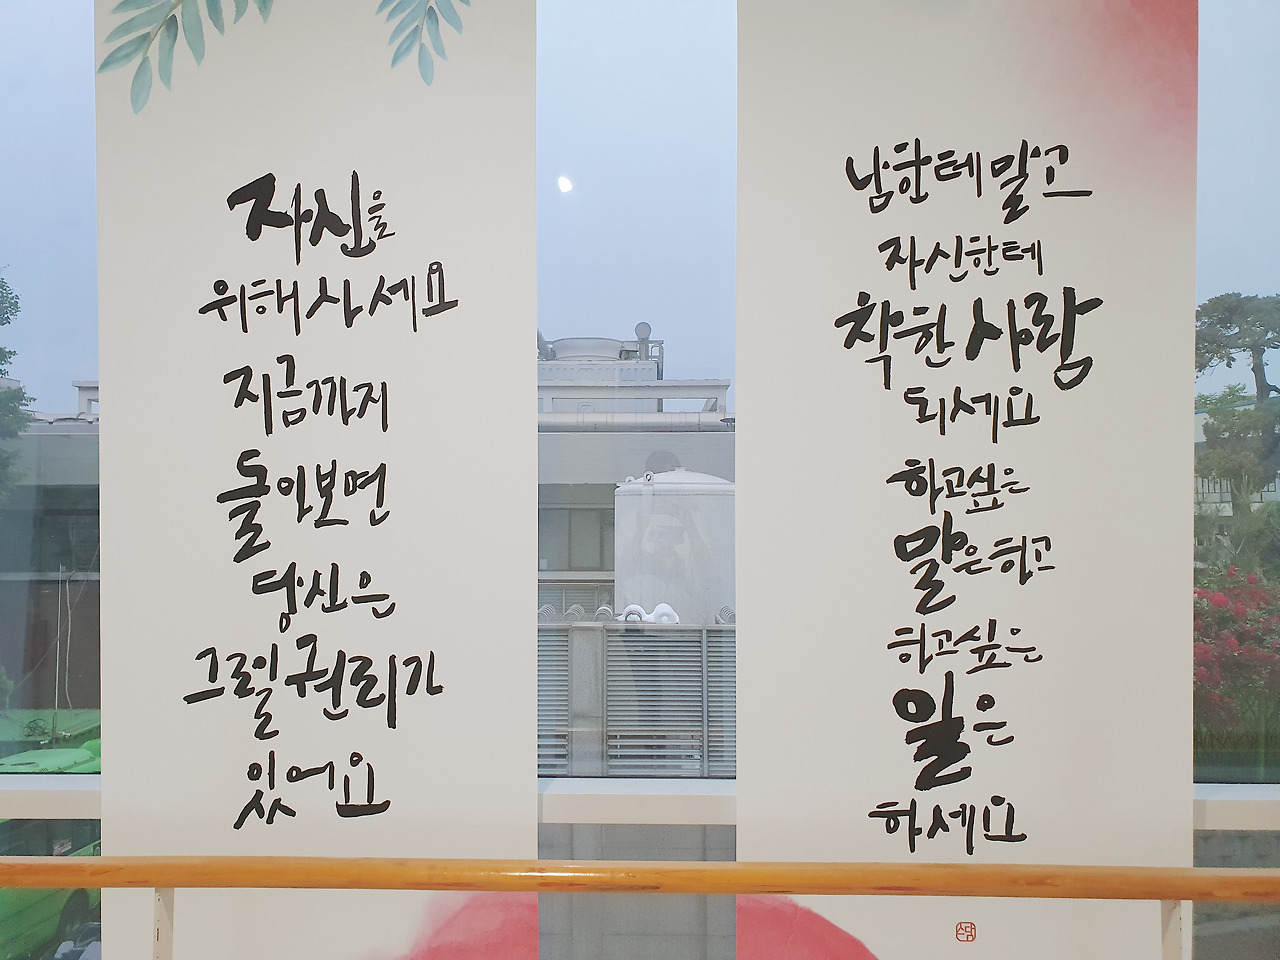 자신을
위해 사세요
지금까지
돌아보면
당신은
그럴 권리가
있어요
남한테 말고
자신한테
착한 사람
되세요
하고싶은
말은 하고
하고싶은
일은
하세요